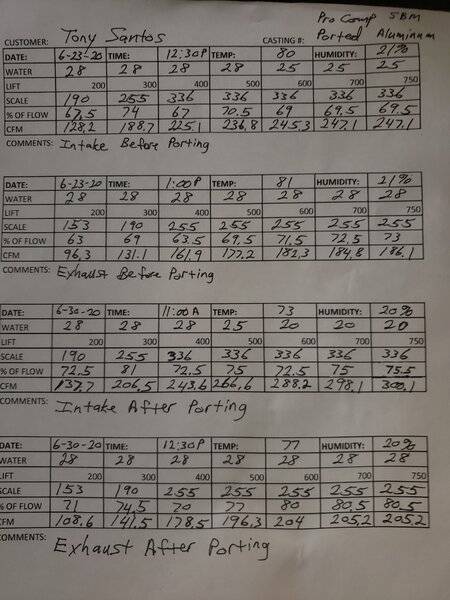 Pro Comp SBM
CUSTOMER: Tony Santos CASTING #: Ported Aluminum
DATE: 6-23-20 TIME: 12:30P TEMP: 80 HUMIDITY: 21%
WATER 28 28 28 28 25 25 25
LIFT 200 300 400 500 600 700 750
SCALE 190 255 336 336 336 336 336
% OF FLOW 67.5 74 67 70.5 69 69.5 69.5
CFM 128.2 188.7 225.1 236.8 245.3 247.1 247.1
COMMENTS: Intake Before Porting
DATE: 6-23-20 TIME: 1:00P TEMP: 81 HUMIDITY: 21%
WATER 28 28 28 28 28 28 28
LIFT 200 300 400 500 600 700 750
SCALE 153 190 255 255 255 255 255
% OF FLOW 63 69 63.5 69.5 71.5 72.5 73
CFM 96.3 131.1 161.9 177.2 182.3 184.8 186.1
COMMENTS: Exhaust Before Porting
DATE: 6-30-20 TIME: 11:00 A TEMP: 73 HUMIDITY: 20%
WATER 28 28 28 25 20 20 20
LIFT 200 300 400 500 600 700 750
SCALE 190 255 336 336 336 336 336
% OF FLOW 72.5 81 72.5 75 72.5 75 75.5
CFM 137.7 206.5 243.6 266.6 288.2 298.1 300.1
COMMENTS: Intake After Porting
DATE: 6-30-20 TIME: 12:30P TEMP: 77 HUMIDITY: 20%
WATER 28 28 28 28 28 28 28
LIFT 200 300 400 500 600 700 750
SCALE 153 190 255 255 255 255 255
% OF FLOW 71 74.5 70 77 80 80.5 80.5
CFM 108.6 141.5 178.5 196.3 204 205.2 205.2
COMMENTS: Exhaust After Porting